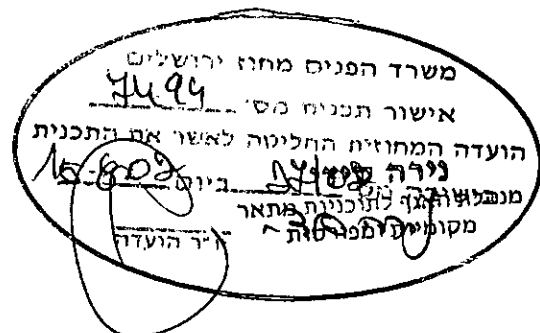 משרד הפנים מחוז ירושלים
אישור תכנית מס' 7494
הועדה המחוזית החליטה לאשר את התכנית
נירה
ביום 15.8.02
לתוכניות מתאר
מקומיות ומפורטות
יו"ר הועדה